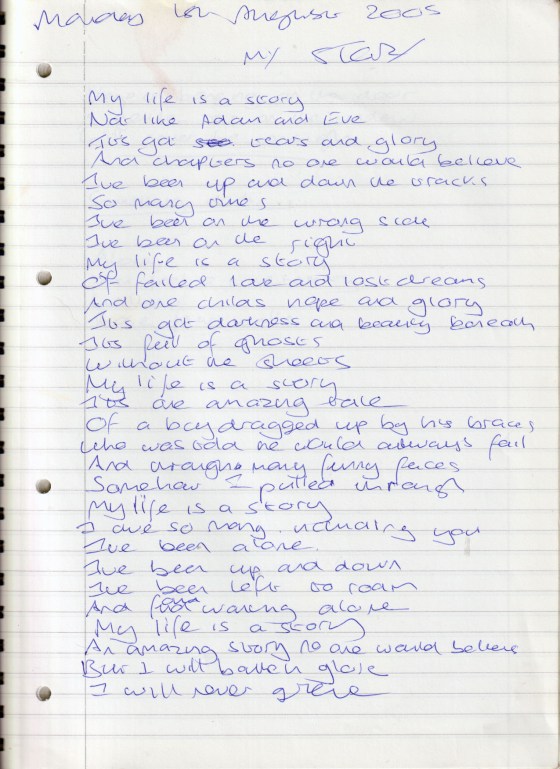 Monday 1st August 2005
My STORY
My life is a story
Not like Adam and Eve
It's got tears and glory
And chapters no one would believe
I've been up and down the tracks
So many times
I've been on the wrong side
I've been on the right
My life is a story
Of failed love and lost dreams
And one childs hope and glory
It's got darkness and beauty beneath
It's full of ghosts
Without the sheets
My life is a story
It's one amazing tale
Of a boy dragged up by his braces
Who was told he would always fail
And through many funny faces
Somehow I pulled through
My life is a story
I owe so many including you
I've been alone.
I've been up and down
I've been left to roam
And walking alone
My life is a story
An amazing story no one would believe
But I will
I will never grieve